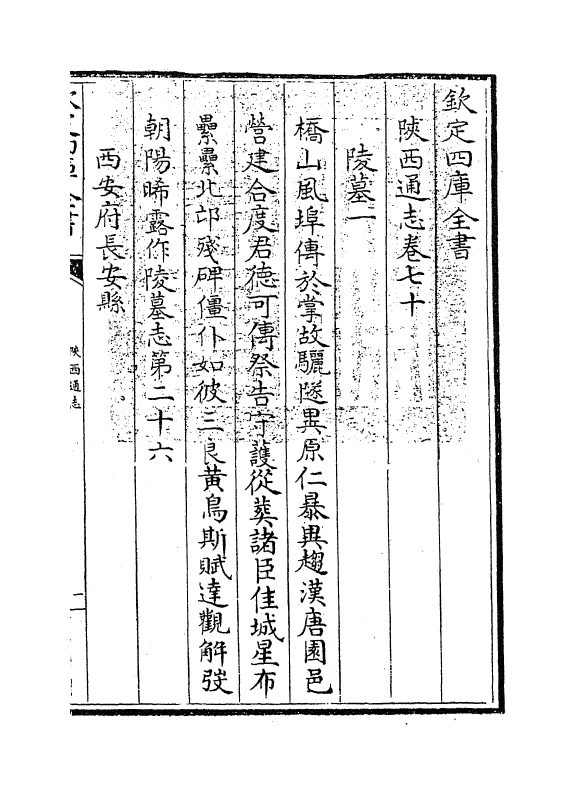 欽定四庫全書
陝西通志卷七十
陵墓一
橋山風埠傳於掌故驪隧異原仁暴異趨漢唐園邑
營建合度君徳可傳祭告守護從葬諸臣佳城星布
纍纍北邙殘碑僵仆如彼三良黄鳥斯賦達觀解弢
朝陽晞露作陵墓志第二十六
西安府長安縣
陜西通志